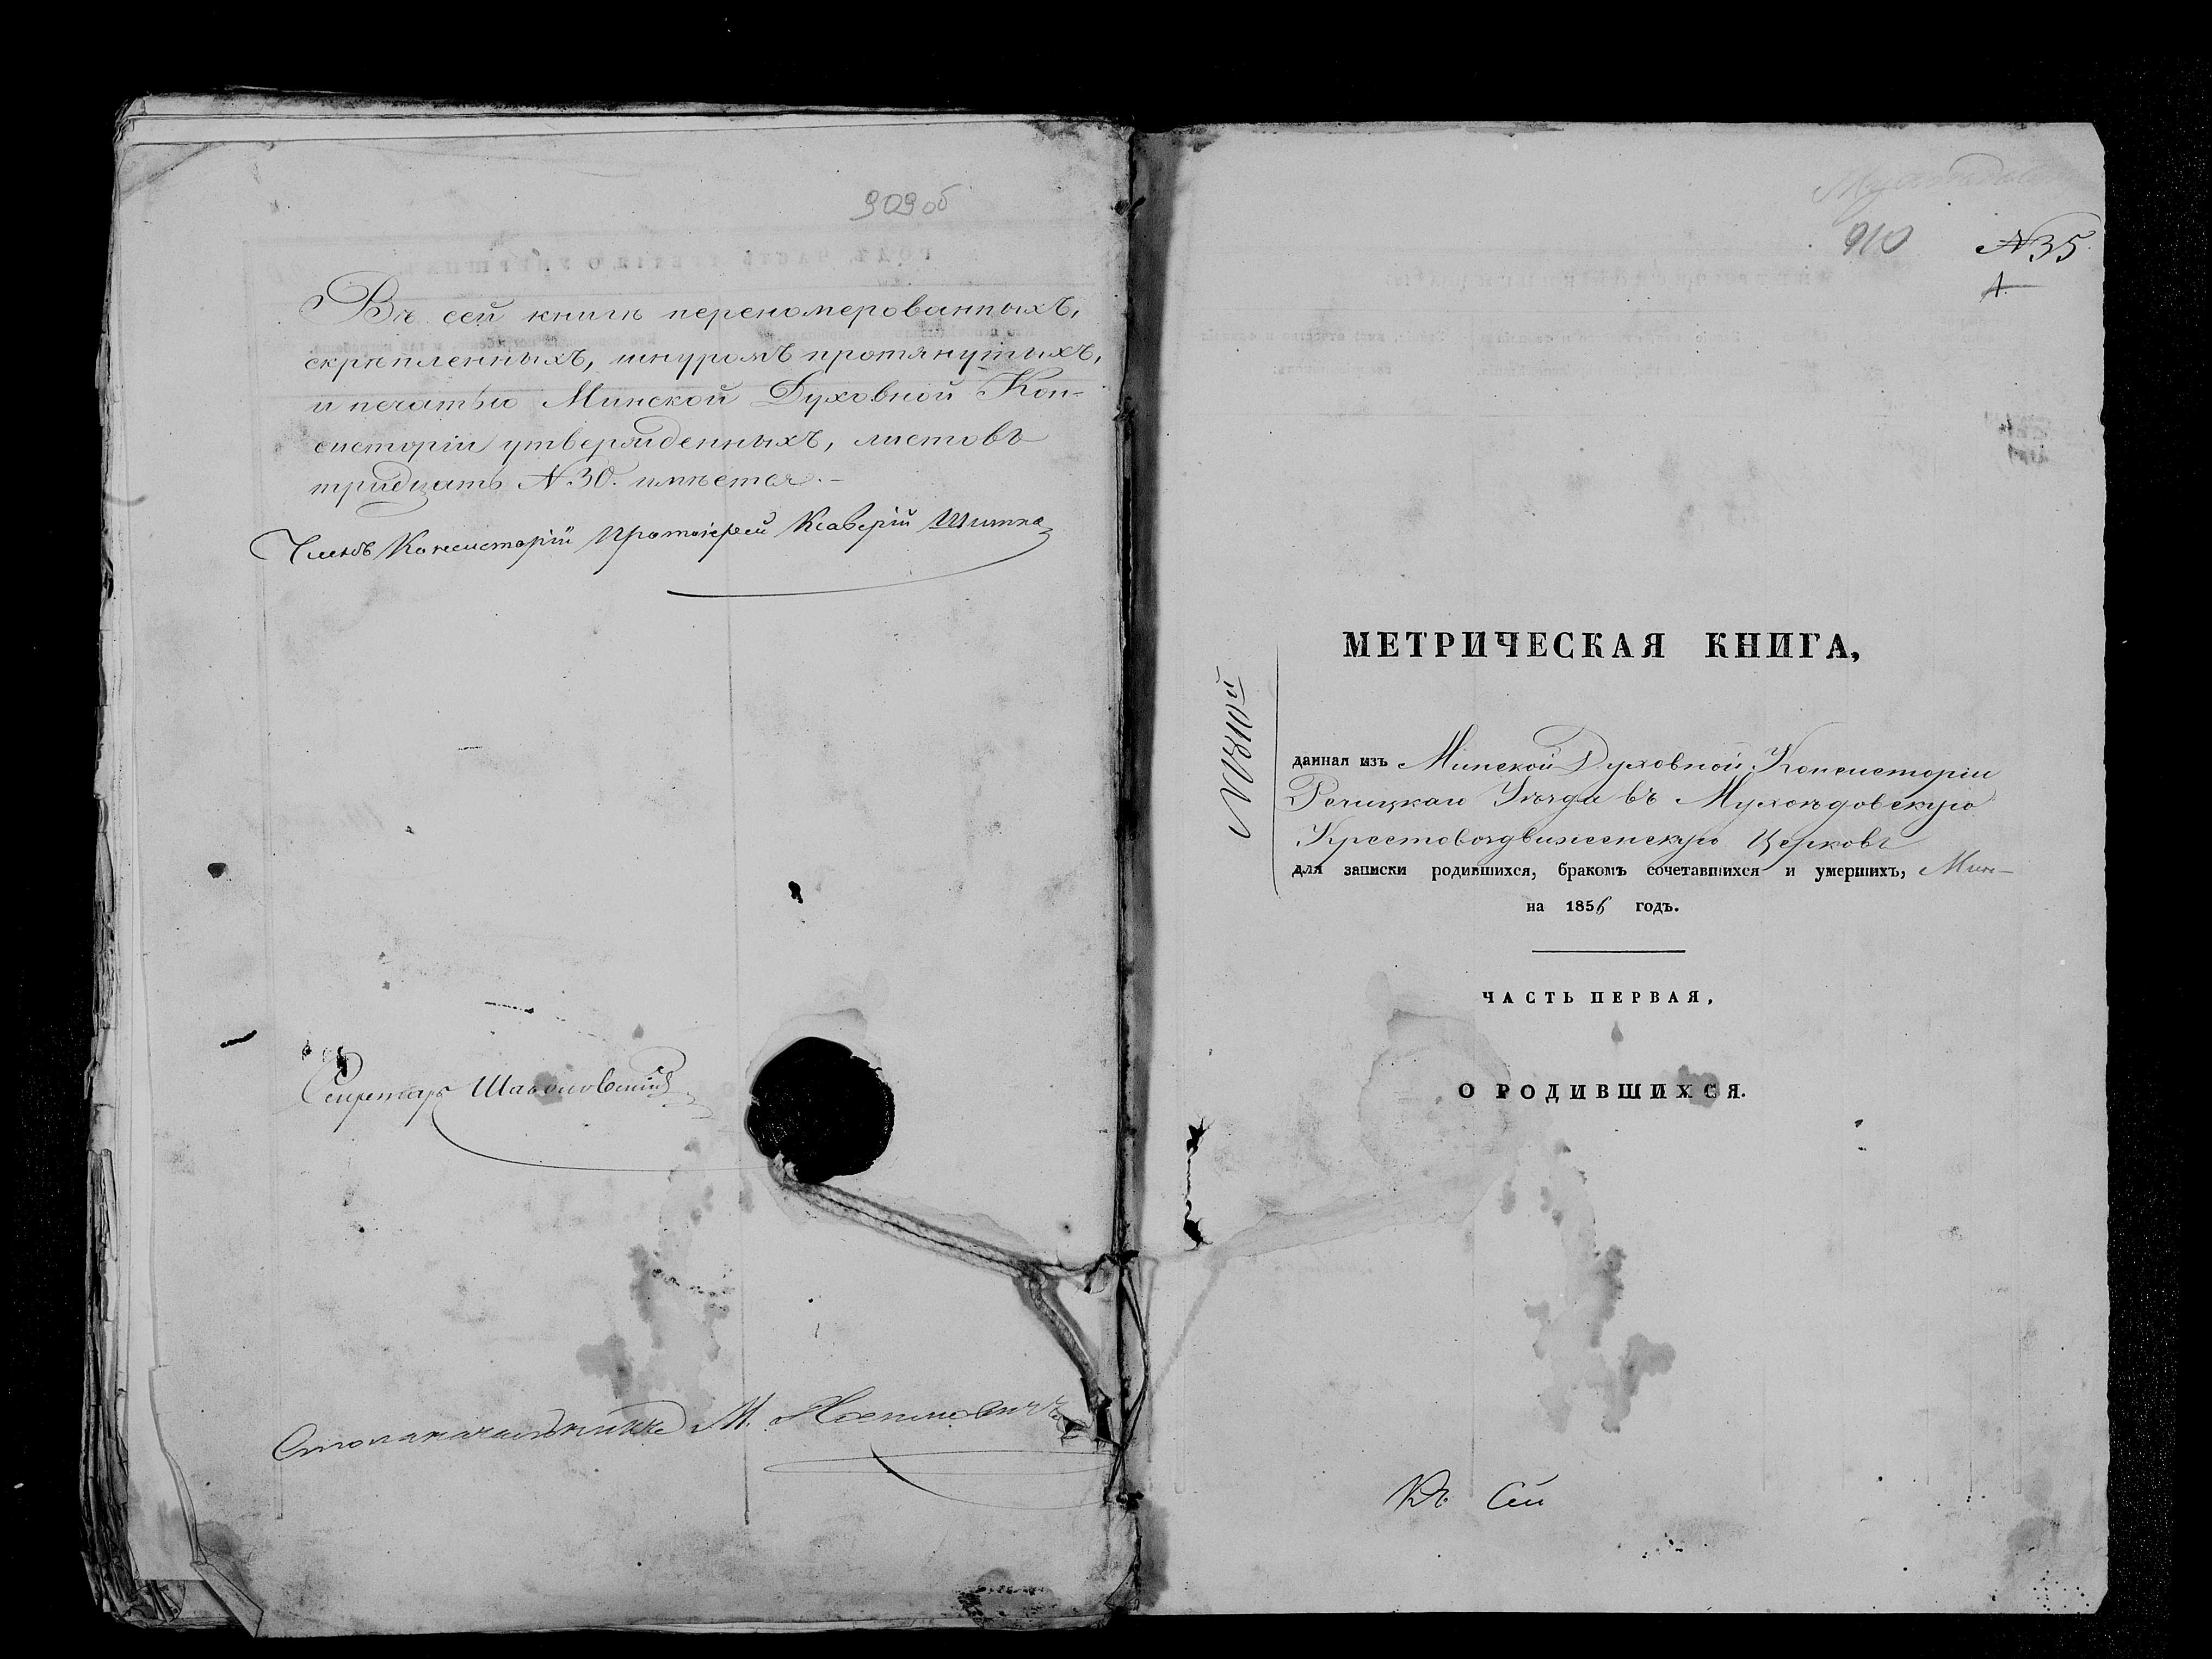 909 об
Въ сей книгѣ переномерованныхъ,
скрѣпленныхъ, шнуромъ протянутыхъ,
и печатью Минской Духовной Кон-
систоріи утвержденныхъ, листовъ
тридцать N 30. имѣется.-
Членъ Консисторіи Протоіерей Ксаверій
Секретарь
Столоначальникъ М.
910 N 35
1
МЕТРИЧЕСКАЯ КНИГА,
данная изъ Минской Духовной Консисторіи
Речицкаго Уѣзда въ Мухоѣдовскую
Крестовоздвиженскую Церковь
для записки родившихся, бракомъ сочетавшихся и умершихъ,
на 1856 годъ.
ЧАСТЬ ПЕРВАЯ,
О РОДИВШИХСЯ.
Къ Сей